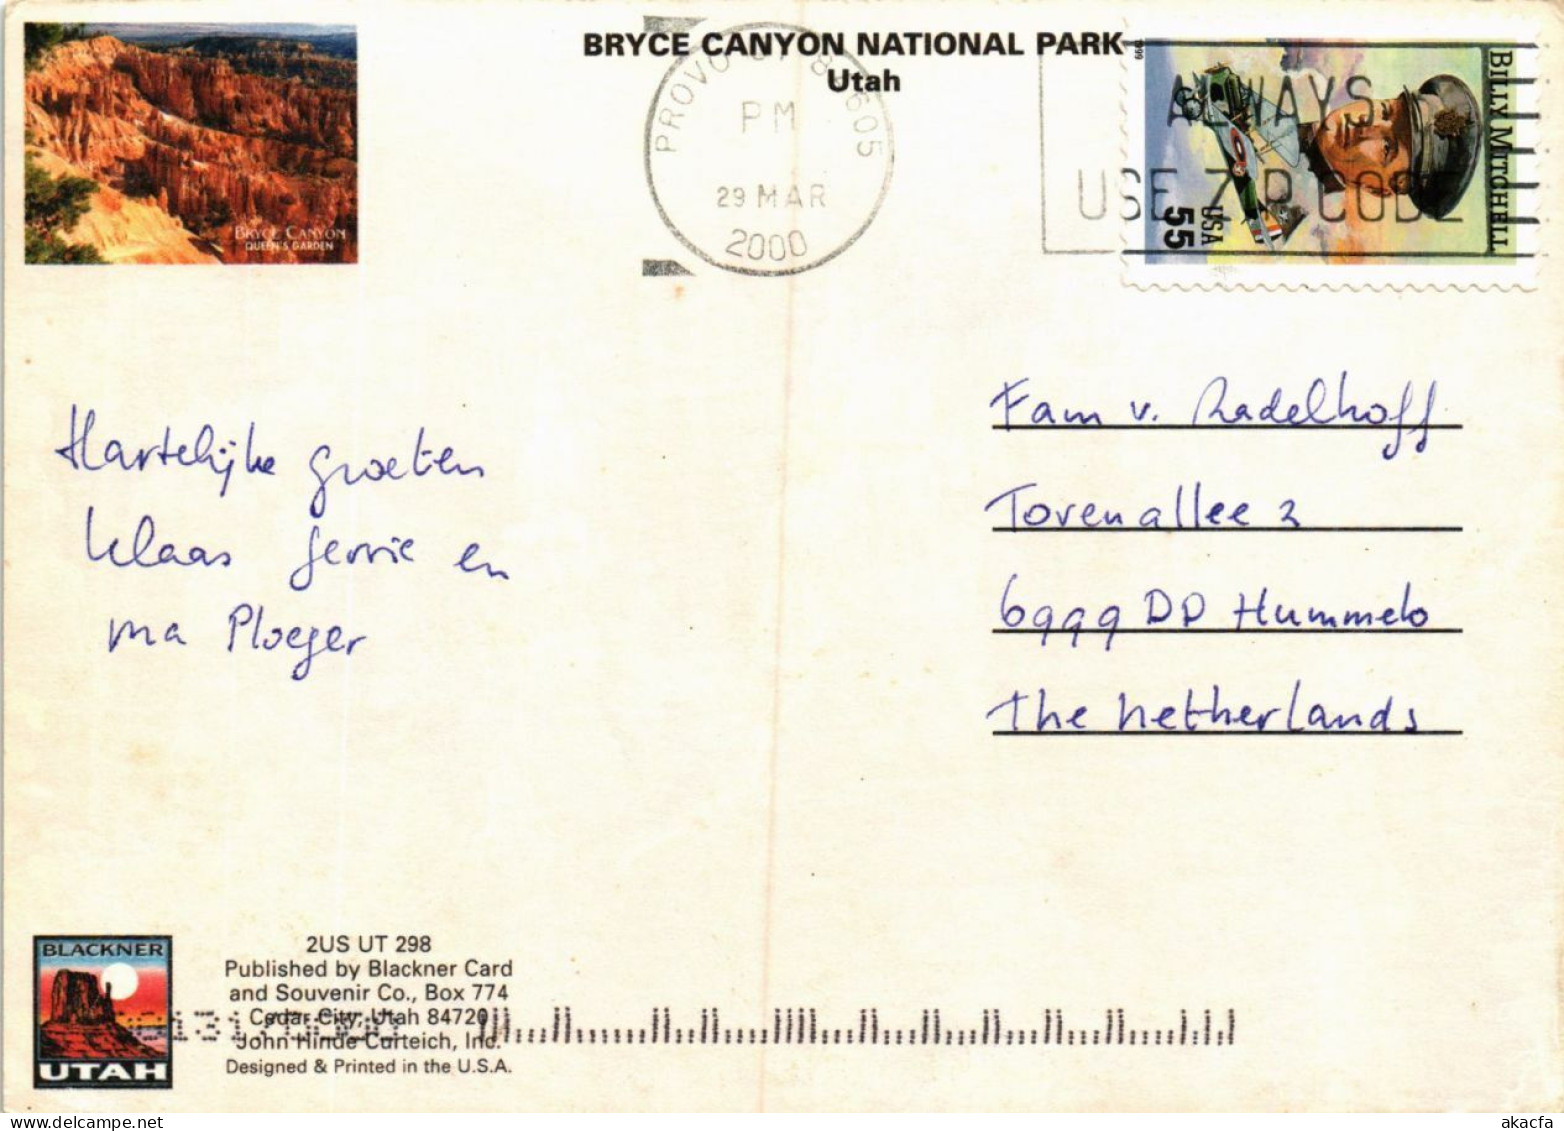 BRYCE CANYON NATIONAL PARK
Utah
BRYCE CANYON
QUEEN'S GARDEN
PROVO UT 84605
PM
29 MAR
2000
ALWAYS
USE ZIP CODE
1999
BILLY MITCHELL
USA
55
Hartelijke groeten
Klaas Gerrie en
ma Ploeger
Fam v. Radelhoff
Torenallee 2
6999 DD Hummelo
The Netherlands
BLACKNER
UTAH
2US UT 298
Published by Blackner Card
and Souvenir Co., Box 774
Cedar City, Utah 84720
John Hinde Curteich, Inc.
Designed & Printed in the U.S.A.
www.delcampe.net
akacfa